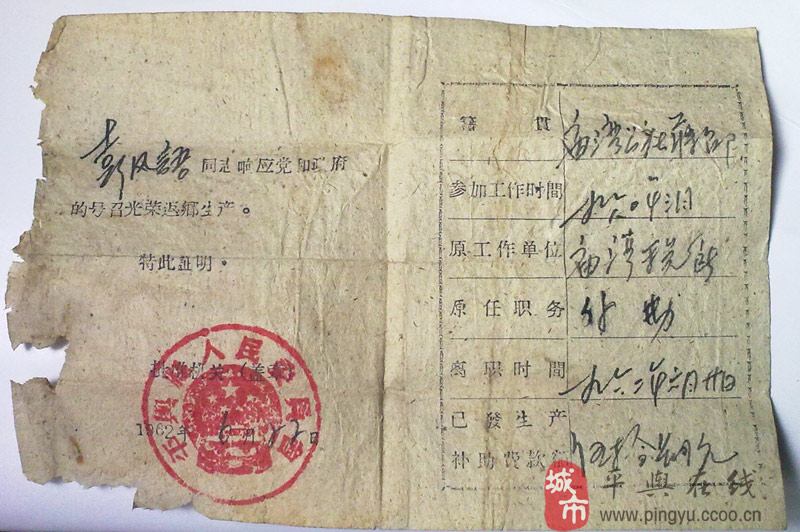 彭凤語 同志响应党和政府
的号召光荣返鄉生产。
特此証明。
批准机关（盖章）
平舆县人民委員会
1962年6月22日
籍貫 庙湾公社
参加工作时間 一九六〇年三月
原工作单位 庙湾税所
原任职务 外勤
离职时間 一九六二年六月廿日
已發生产
补助費款
城市
平舆在线
www.pingyu.ccoo.cn